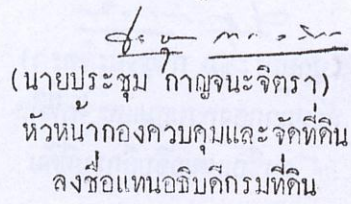 (นายประชุม กาญจนะจิตรา)
หัวหน้ากองควบคุมและจัดที่ดิน
ลงชื่อแทนอธิบดีกรมที่ดิน